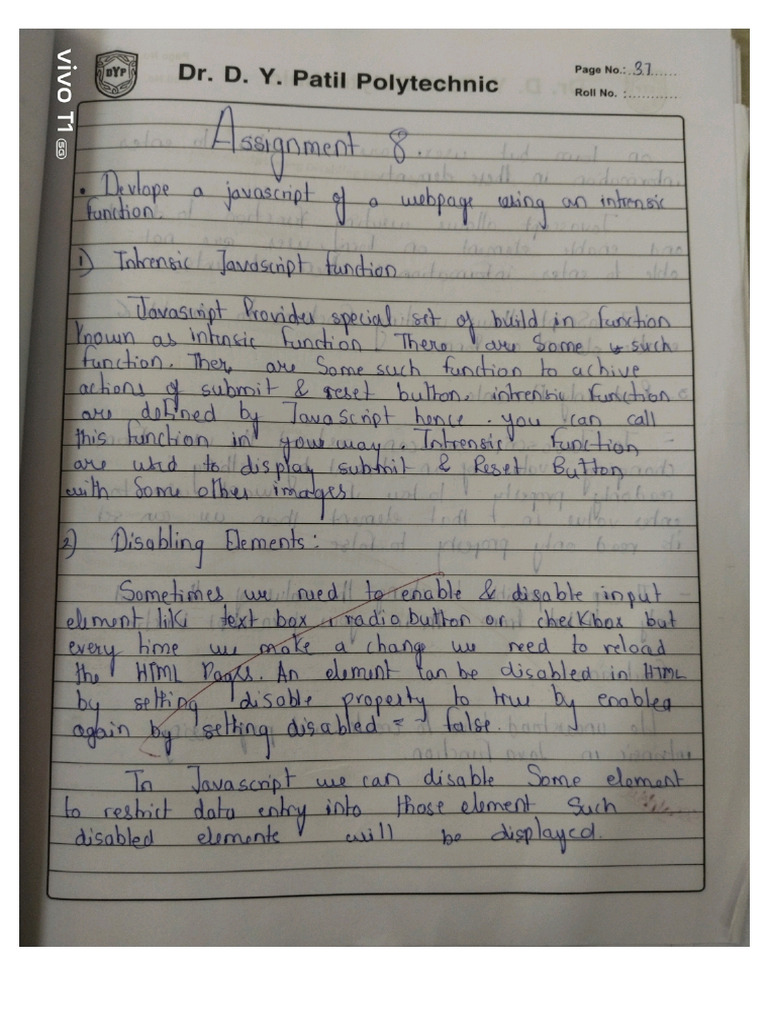 vivo T1 5G
DYP
Dr. D. Y. Patil Polytechnic
Page No.: 37
Roll No. :
Assignment 8.
• Devlope a javascript of a webpage using an intrensic
function
1) Intrensic Javascript function
Javascript Provides special set of build in function
known as intrinsic function. There are some such
function. There are Some such function to achive
actions of submit & reset button. intrensic function
are defined by JavaScript hence. you can call
this function in your way. Intrensic function
are used to display submit & Reset Button
with Some other images
2) Disabling Elements:
Sometimes we need to enable & disable input
element like text box, radio button or checkbox but
every time we make a change we need to reload
the HTML Pages. An element can be disabled in HTML
by setting disable property to true by enabled
again by setting disabled = false.
In Javascript we can disable Some element
to restrict data entry into those element Such
disabled elements will be displayed.